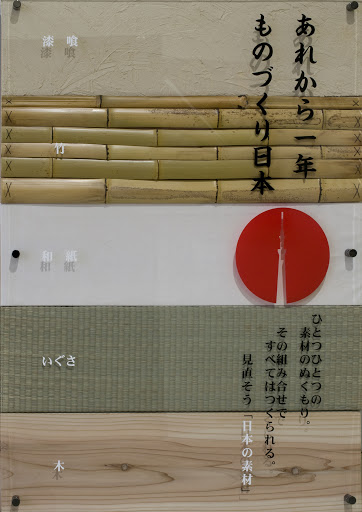 あれから一年
ものづくり日本
漆喰
竹
和紙
いぐさ
木
ひとつひとつの
素材のぬくもり。
その組み合せで
すべてはつくられる。
見直そう「日本の素材」